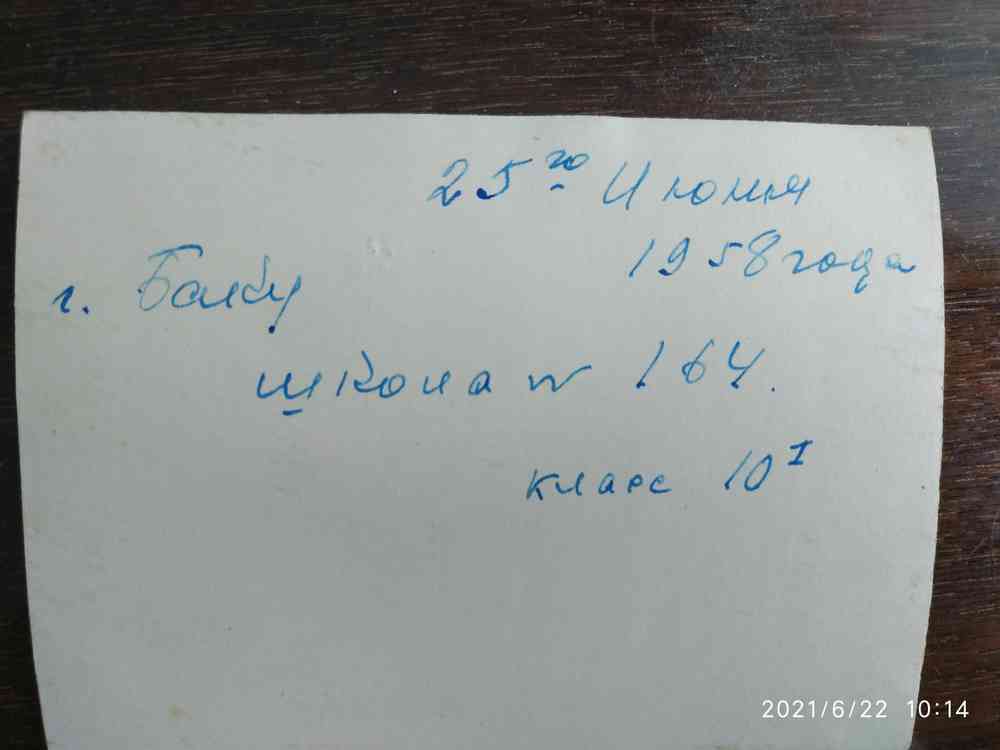 25го Июня
1958 года
г. Баку
школа № 164.
класс 10 I
2021/6/22 10:14